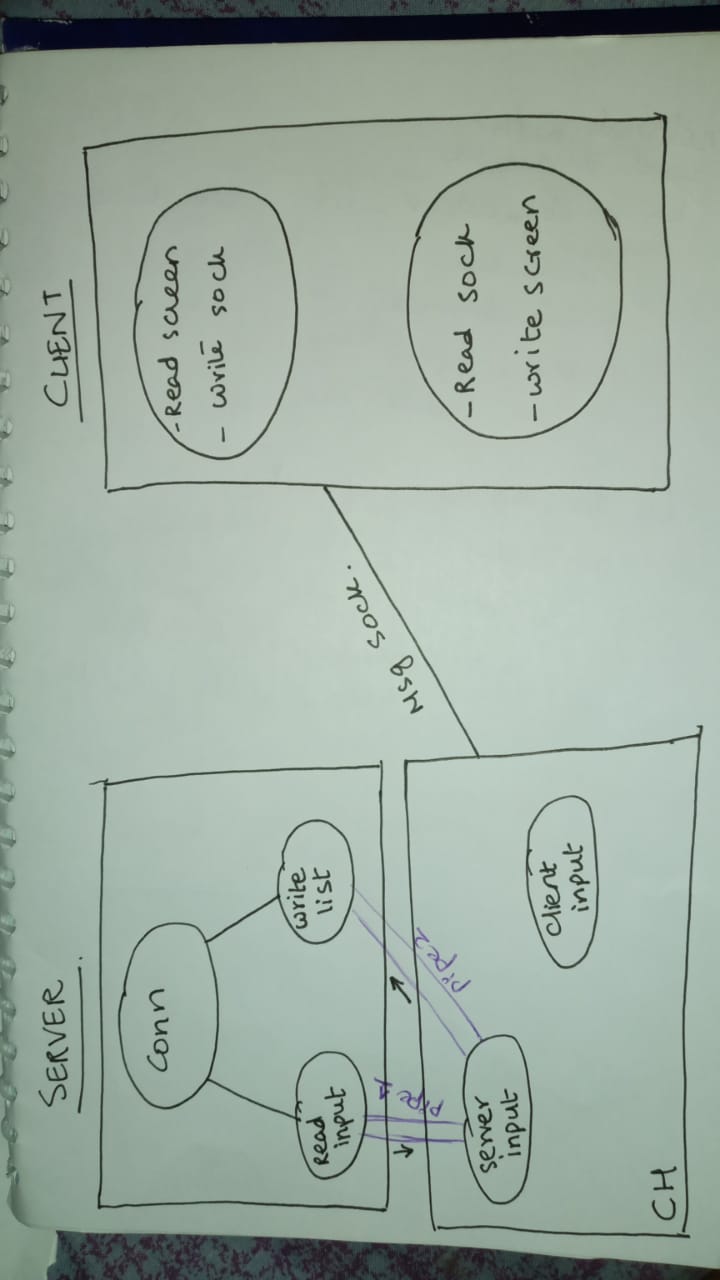 SERVER.
Conn
Read
input
write
list
pipe 1
pipe 2
server
input
client
input
CH
Msg sock.
CLIENT
-Read screen
- write sock
-Read sock
-write screen